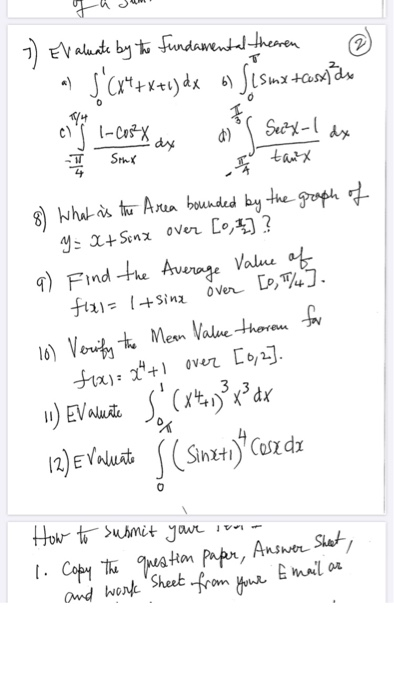 of a Sum
7) Evaluate by the Fundamental theorem ②
a) ∫₀¹ (x⁴+x+1) dx b) ∫₀^π (Sinx + Cosx)² dx
c) ∫_{-π/4}^{π/4} (1-Cos²x)/Sinx dx d) ∫_{-π/4}^{π/3} (Sec²x-1)/tan²x dx
8) What is the Area bounded by the graph of
y = x + Sinx over [0, π/2] ?
9) Find the Average Value of
f(x) = 1 + sinx over [0, π/4].
10) Verify the Mean Value theorem for
f(x) = x⁴+1 over [0,2].
11) EValuate ∫₀¹ (x⁴+1)³ x³ dx
12) EValuate ∫₀^π (Sinx+1)⁴ Cosx dx
How to submit your
1. Copy The question paper, Answer Sheet,
and work Sheet from your Email or